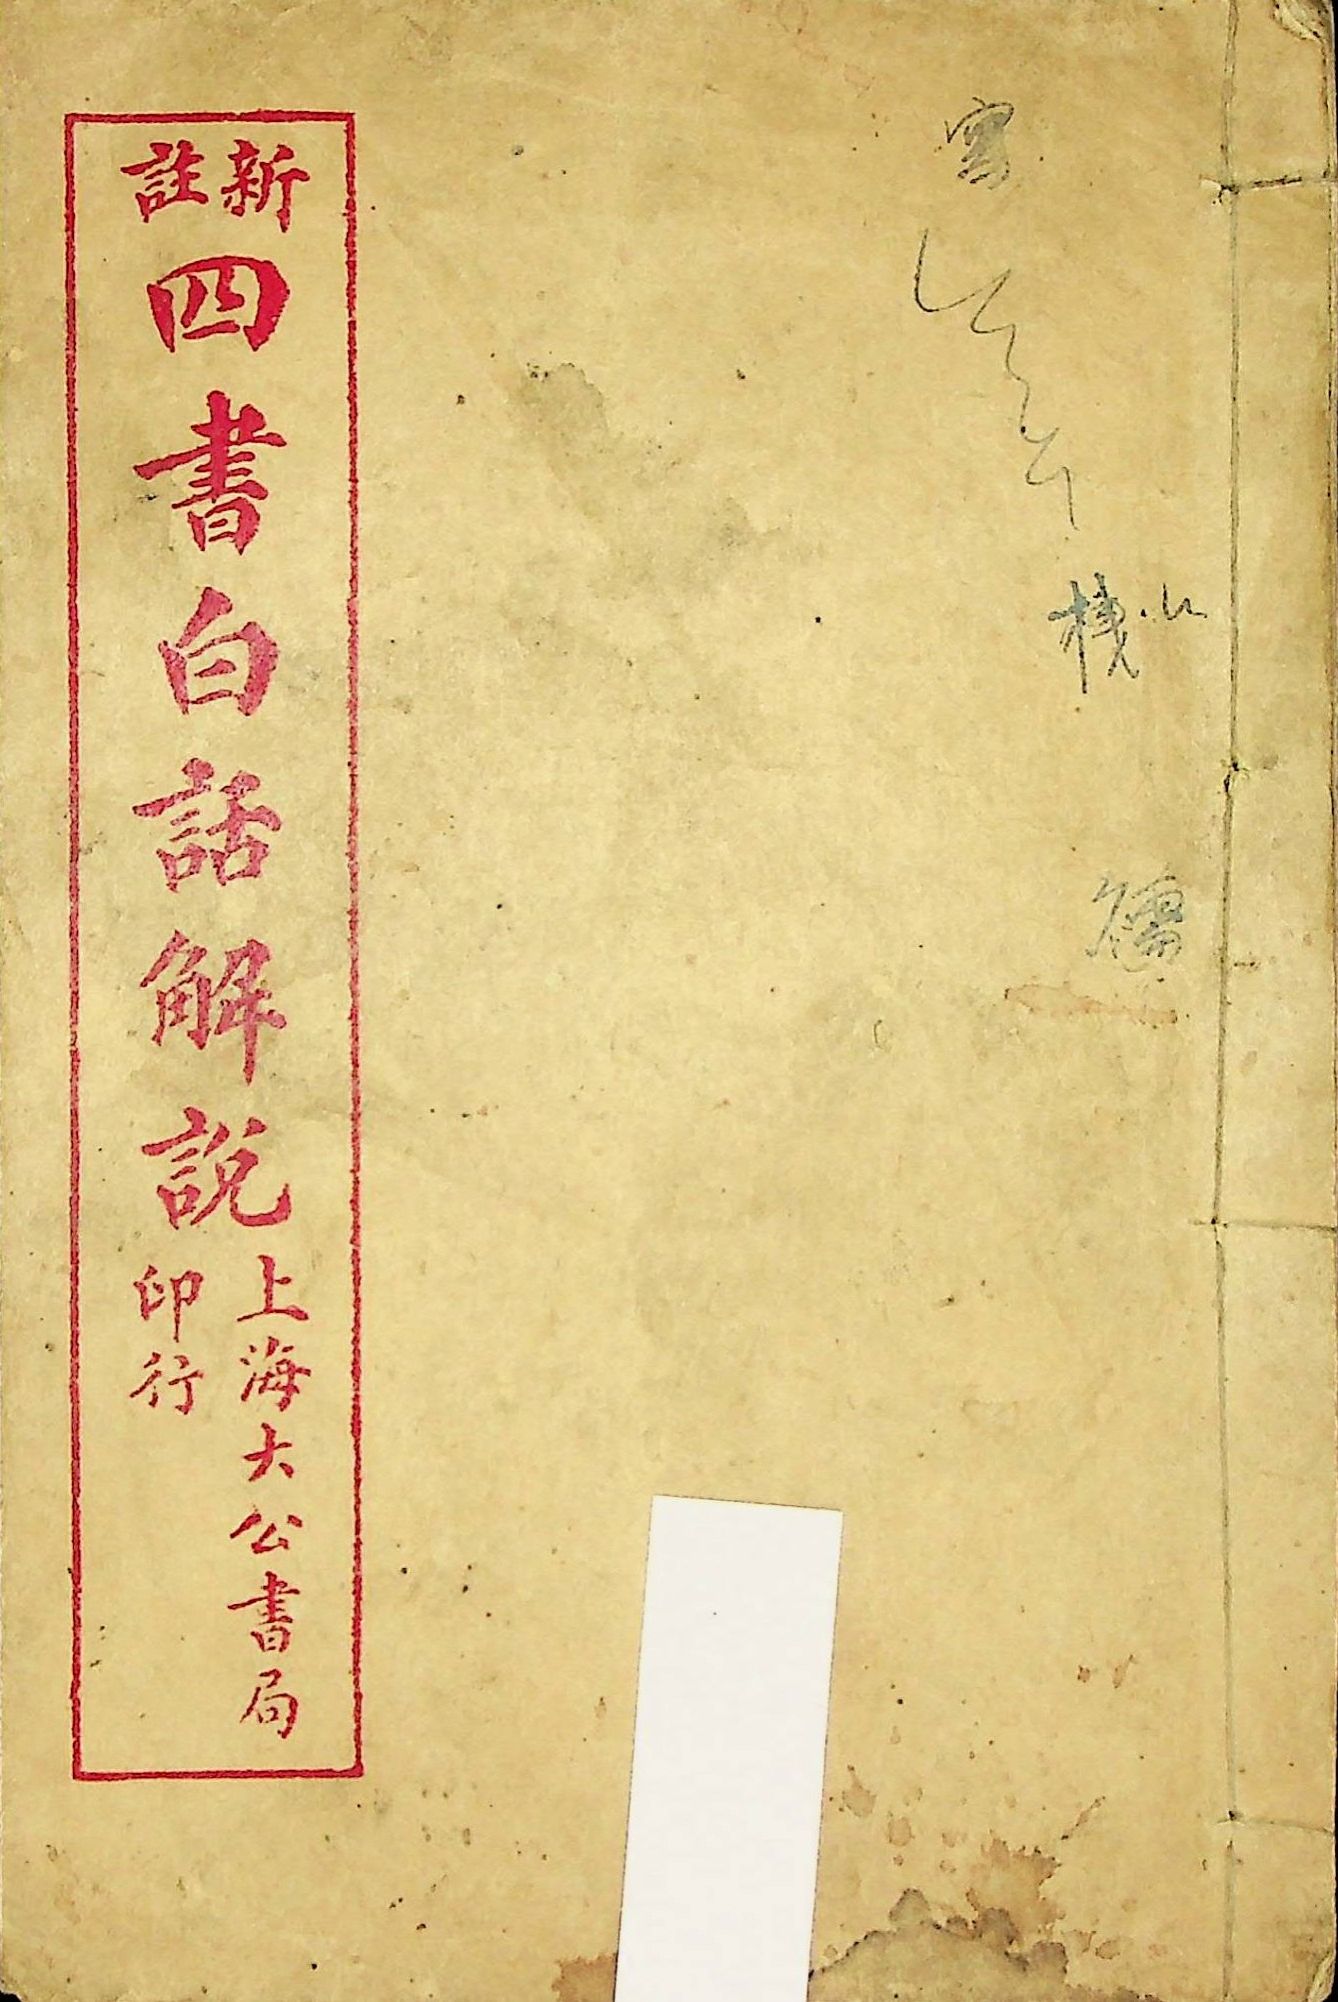 新註
四書白話解說
上海大公書局
印行